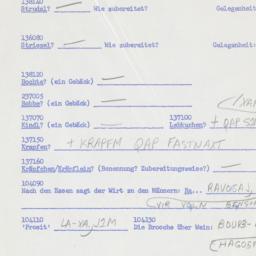 138140
Strudel? Wie zubereitet? Gelegenheit
136080
Striezel? Wie zubereitet? Gelegenheit:
138120
Bochts? (ein Gebäck)
237005
Bobbe? (ein Gebäck)
137070 137100
Kindl? (ein Gebäck) Lebkuchen? +
137150
Krapfen? + KRAPFM QAP FASTNAXT
137160
Kräfchen/Kräflein? (Benennung? Zubereitungsweise?)
104090
Nach den Essen sagt der Wirt zu den Männern: Ra... RAVOSAJ,
(VIR VOLN
104110 104130
'Prosit' LA-XA,JIM Die Broche über Wein: BOURƎ-
(HAGOF